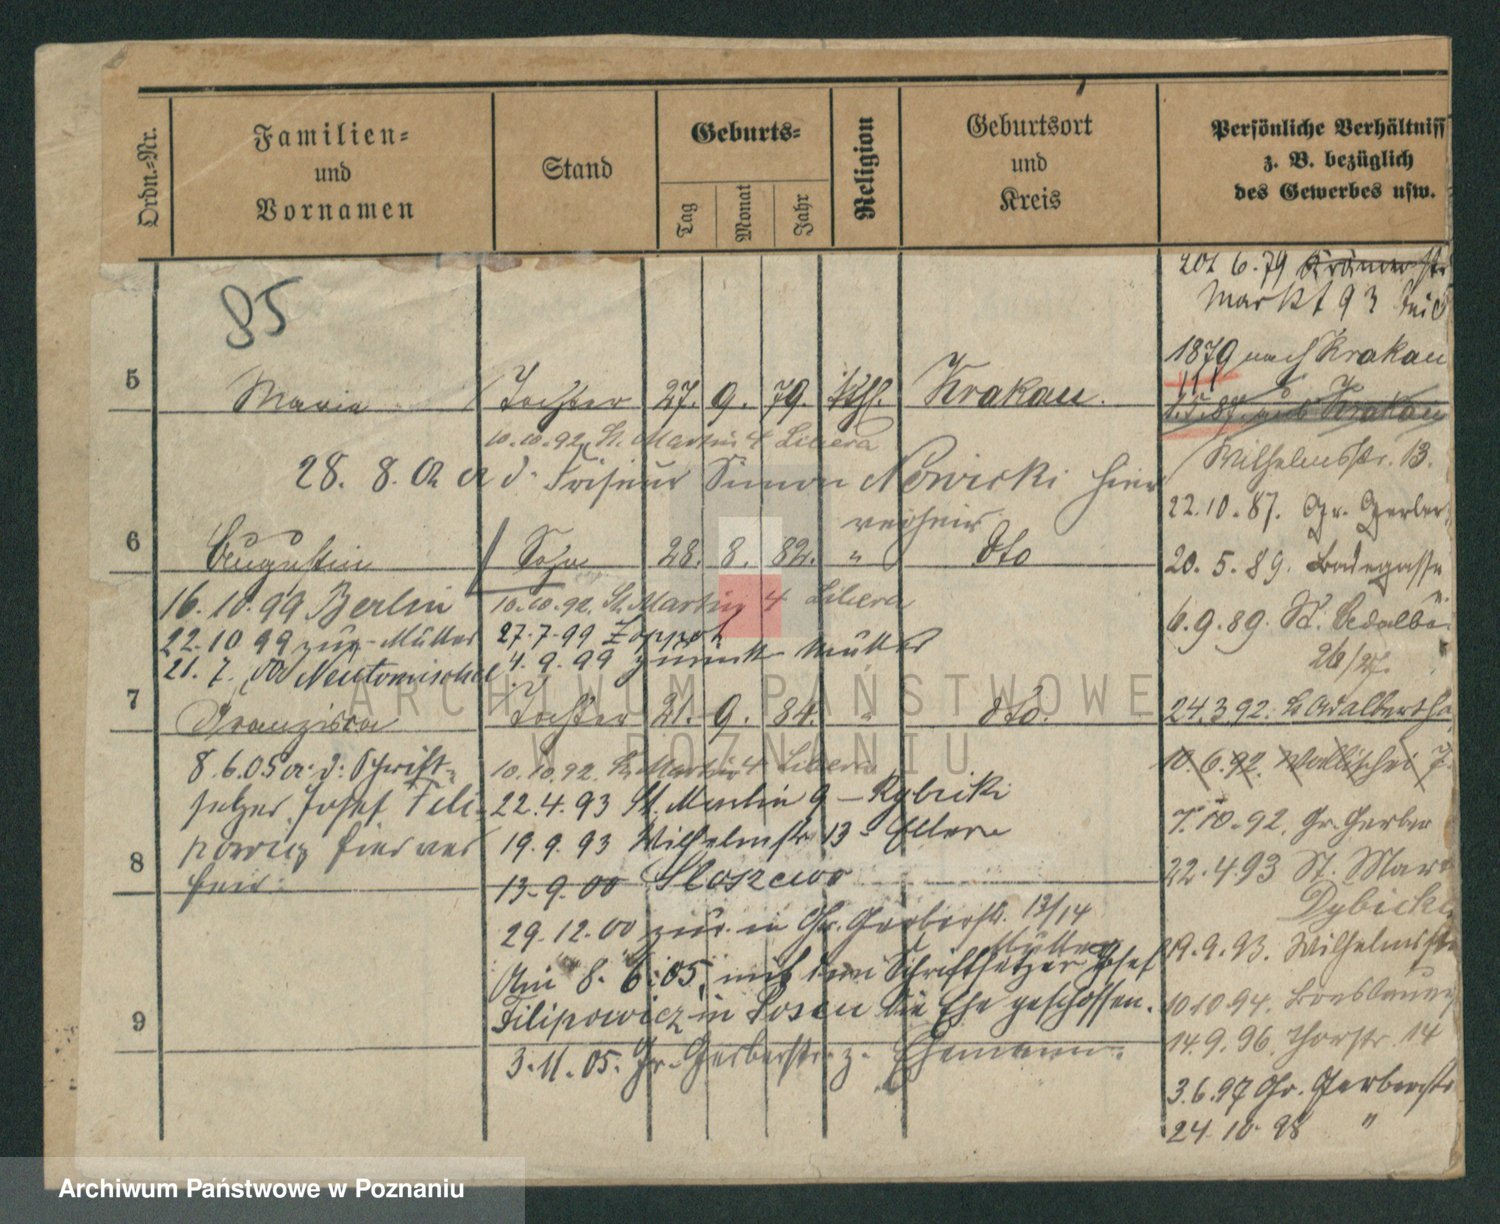 Ordn.-Nr.
Familien-
und
Vornamen
Stand
Geburts-
Tag
Monat
Jahr
Religion
Geburtsort
und
Kreis
Persönliche Verhältniss
z. B. bezüglich
des Gewerbes usw.
85
6.79 Krämerstr.
Markt 93
1879 nach Krakau
5
Maria
Tochter
27. 9. 79.
kth.
Krakau.
1.5.87. aus Krakau
10.10.92. St. Martin 4 Libera
Wilhelmstr. 13.
28. 8. 02 a d. Friseur Simon Nowicki hier
verheir.
22.10.87. Gr. Gerber
6
Augustin
Sohn
28. 8. 82.
"
dto
20. 5. 89. Badegasse
16. 10. 99 Berlin
10.10.92. St. Martin 4 Libera
6.9.89. St. Adalb
26/27.
22.10 99 zur Mutter
27.7.99 Zoppot
21. 7. 00 Neutomischel
4. 9. 99 zurück Mutter
7
Franziska
Tochter
21. 9. 84.
"
dto.
24.3.92. St Adalbertstr
8.6.05 a. d. Schrift-
10.10.92. St. Martin 4 Libera
10.6.92. Wallischei 7.
setzer Josef Fili-
22.4.93 St. Martin 9 – Rybicki
7.10.92. Gr. Gerber
powicz hier ver
19.9.93 Wilhelmstr. 13 - Eltern
8
heir.
13.9.00 Sloszewo
22.4.93 St. Mart
Dybicki
29.12.00 zur. in Gr. Gerberstr. 13/14
Mutter
19.9.93. Wilhelmstr
Am 8. 6. 05, mit dem Schriftsetzer Josef
Filipowicz in Posen die Ehe geschlossen.
10.10.94.
9
14.9.96. Thorstr. 14
3.11.05. Gr. Gerberstr. z. Ehemann.
3.6.97 Gr. Gerberstr
24.10.98 "
ARCHIWUM PAŃSTWOWE
W POZNANIU
Archiwum Państwowe w Poznaniu